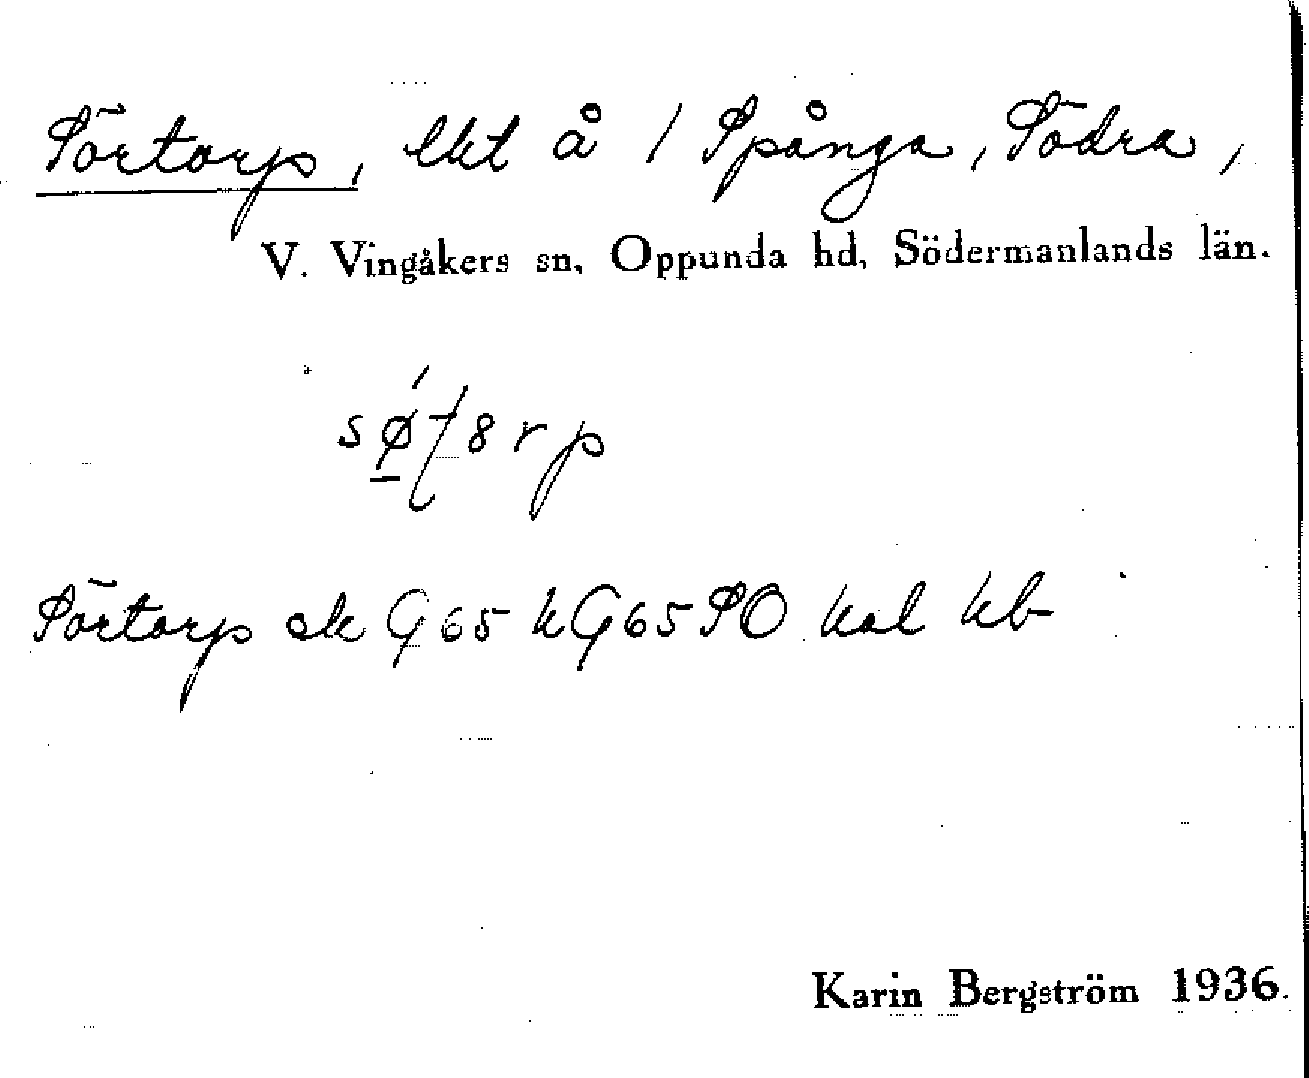 Sörtorp, lht å 1 Spånga, Södra,
V. Vingåkers sn, Oppunda hd, Södermanlands län.
Sörtorp ek G 65 k G 65 SO kal kb
Karin Bergström 1936.